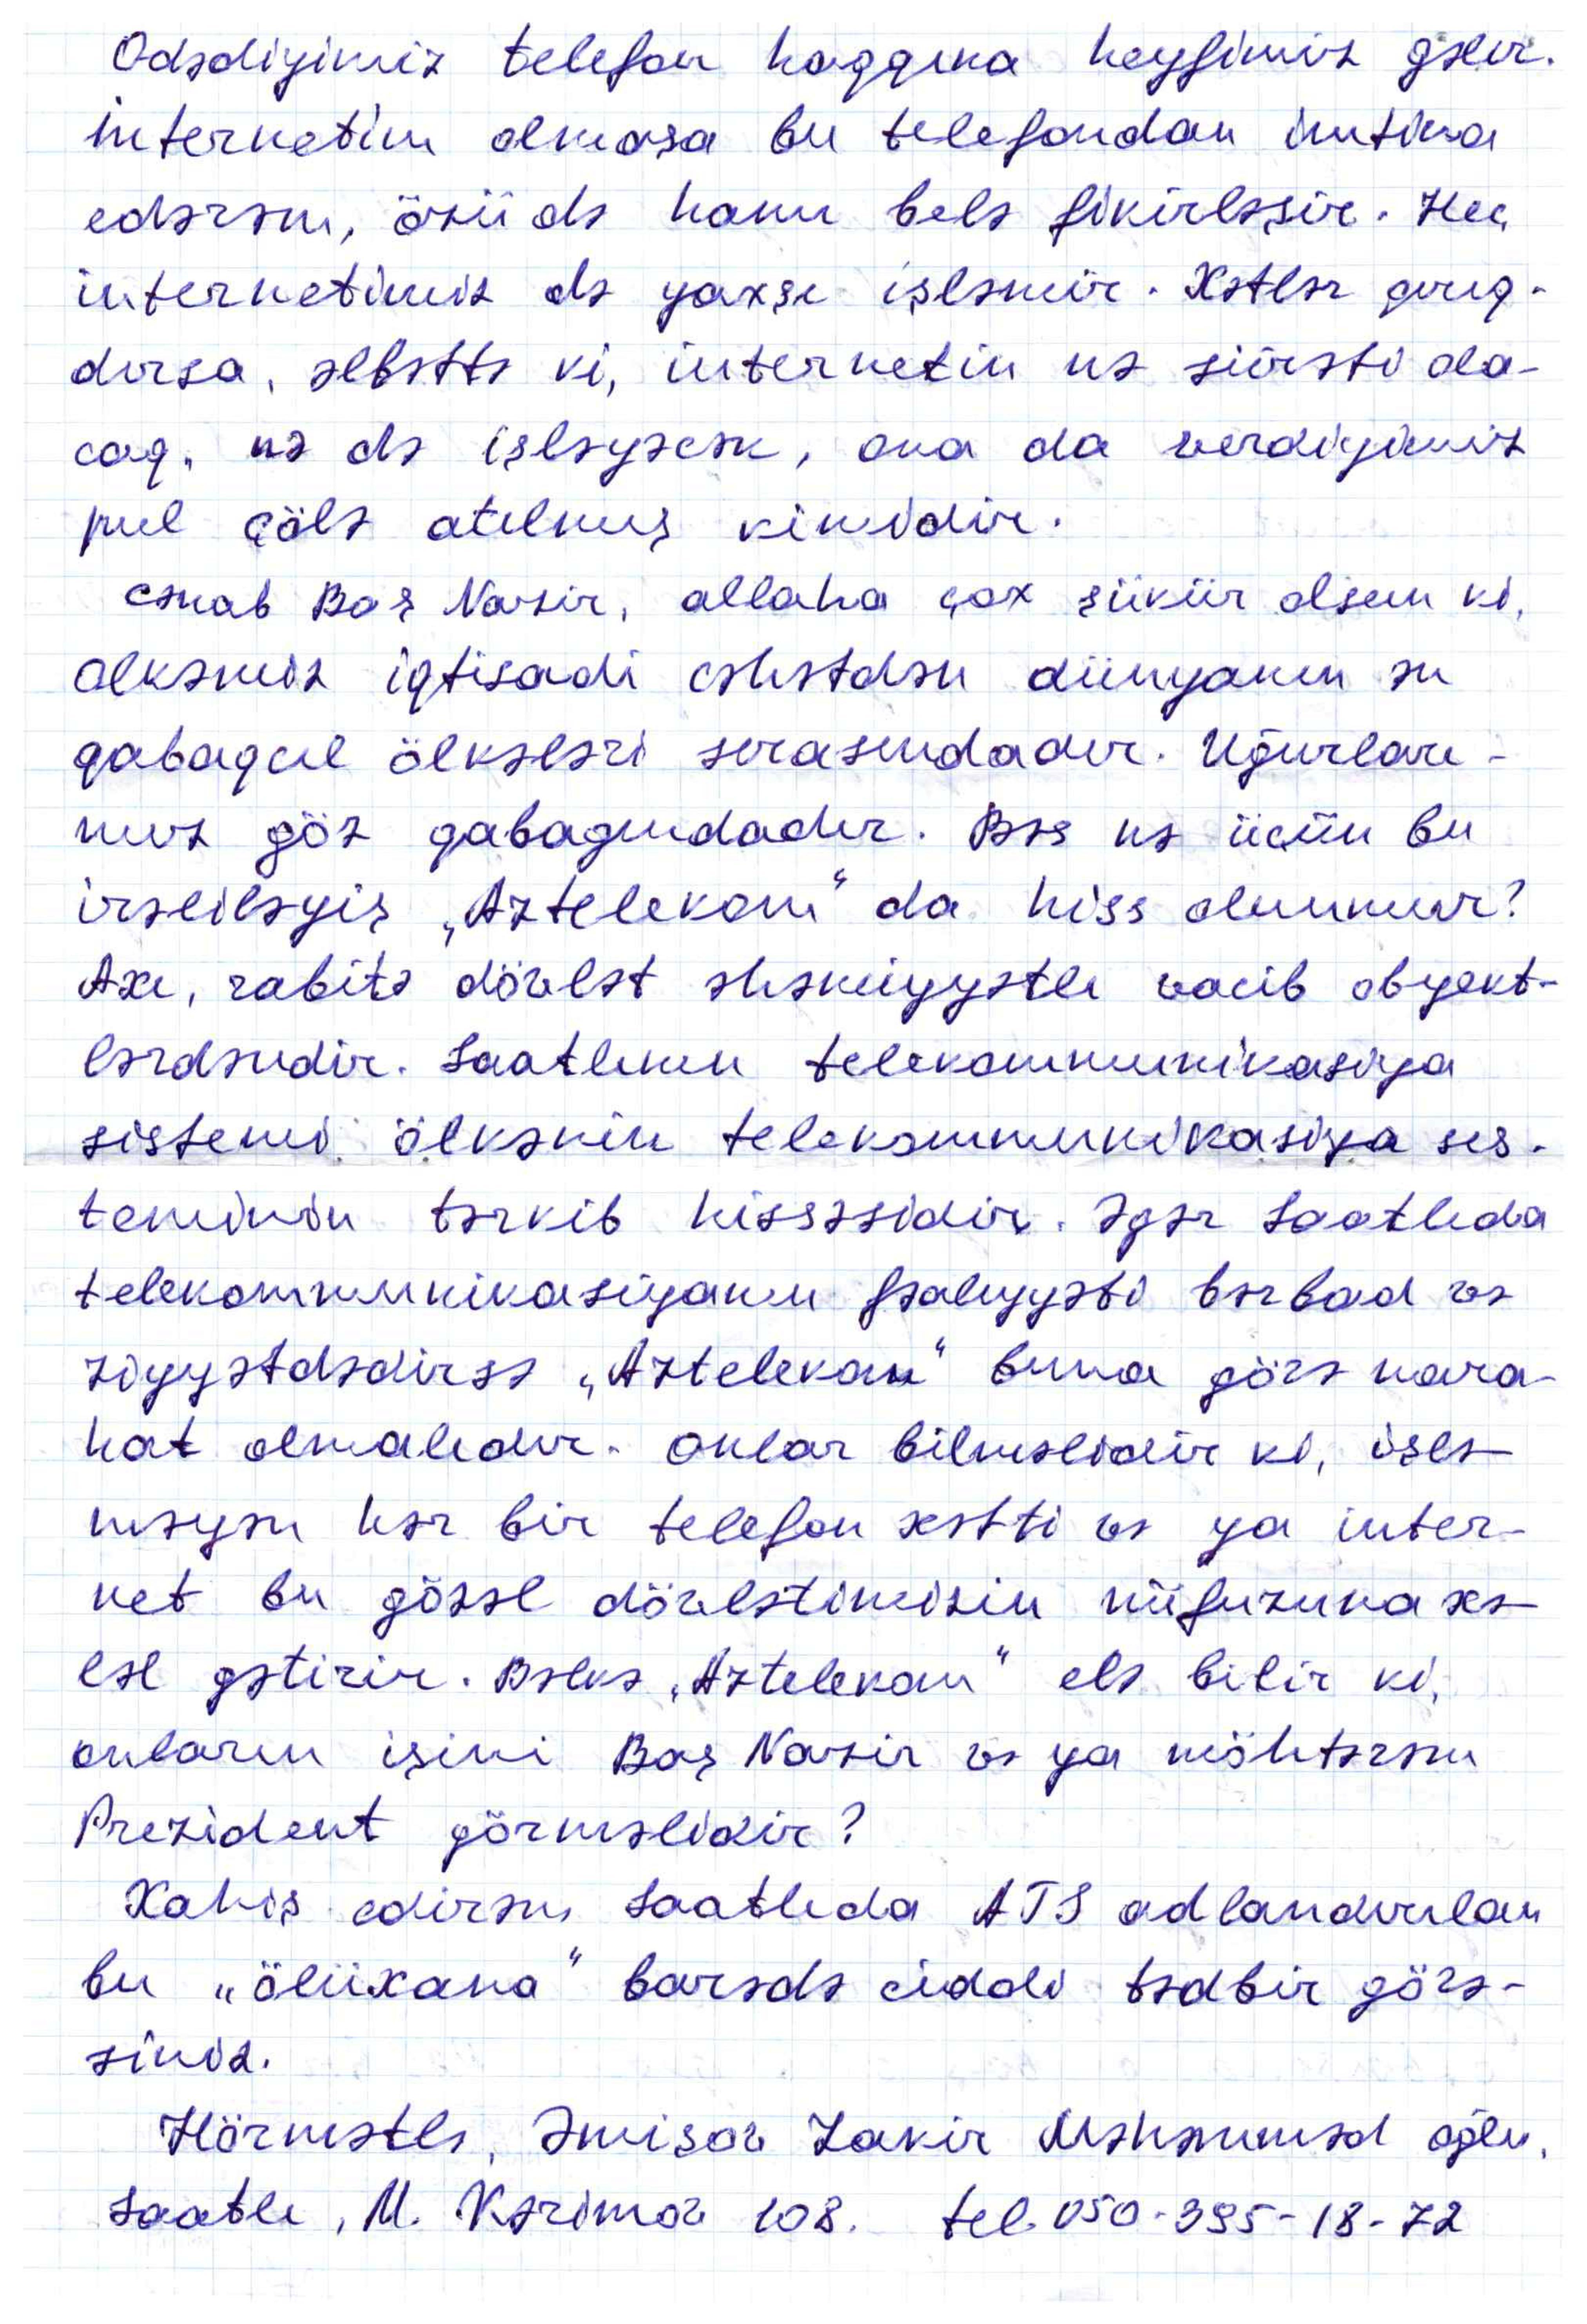 Ödədiyimiz telefon haqqına heyfimiz gəlir.
İnternetim olmasa bu telefondan imtina
edərəm, özü də hamı belə fikirləşir. Heç
internetimiz də yaxşı işləmir. Xətlər qırıq-
dırsa, əlbəttə ki, internetin nə sürəti ola-
caq, nə də işləyəcək, ona da verdiyimiz
pul çölə atılmış kimidir.
Cənab Baş Nazir, allaha çox şükür olsun ki,
ölkəmiz iqtisadi cəhətdən dünyanın ən
qabaqcıl ölkələri sırasındadır. Uğurları-
mız göz qabağındadır. Bəs nə üçün bu
irəliləyiş „Aztelekom“da hiss olunmur?
Axı, rabitə dövlət əhəmiyyətli vacib obyekt-
lərdəndir. Saatlının telekommunikasiya
sistemi ölkənin telekommunikasiya sis-
teminin tərkib hissəsidir. Əgər Saatlıda
telekommunikasiyanın fəaliyyəti bərbad və
ziyyətdədirsə „Aztelekom“ buna görə nara-
hat olmalıdır. Onlar bilməlidir ki, işlə-
məyən hər bir telefon xətti və ya inter-
net bu gözəl dövlətimizin nüfuzuna xə-
ləl gətirir. Bəlkə „Aztelekom“ elə bilir ki,
onların işini Baş Nazir və ya möhtərəm
Prezident görməlidir?
Xahiş edirəm Saatlıda ATS adlandırılan
bu „ölüxana“ barədə ciddi tədbir görə-
siniz.
Hörmətlə, Əmişov Zakir Məhəmməd oğlu.
Saatlı, M. Kərimov 108. tel. 050-395-18-72